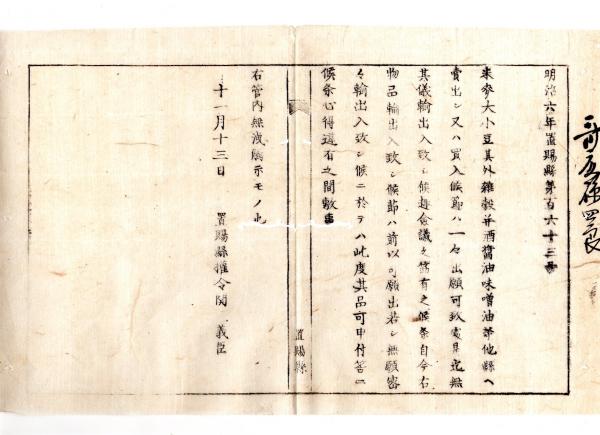 明治六年置賜縣第百六十三号
米麥大小豆其外雑穀并酒醤油味噌油等他縣ヘ
賣出シ又ハ買入候節ハ一々出願可致處是迄無
其儀輸出入致シ候趣僉議之筋有之候条自今右
物品輸出入致シ候節ハ前以可願出若シ無願密
々輸出入致シ候ニ於テハ此度其品可申付筈ニ
候条心得違有之間敷事
右管内無洩觸示モノ也
十一月十三日 置賜縣権令関 義臣
置賜縣